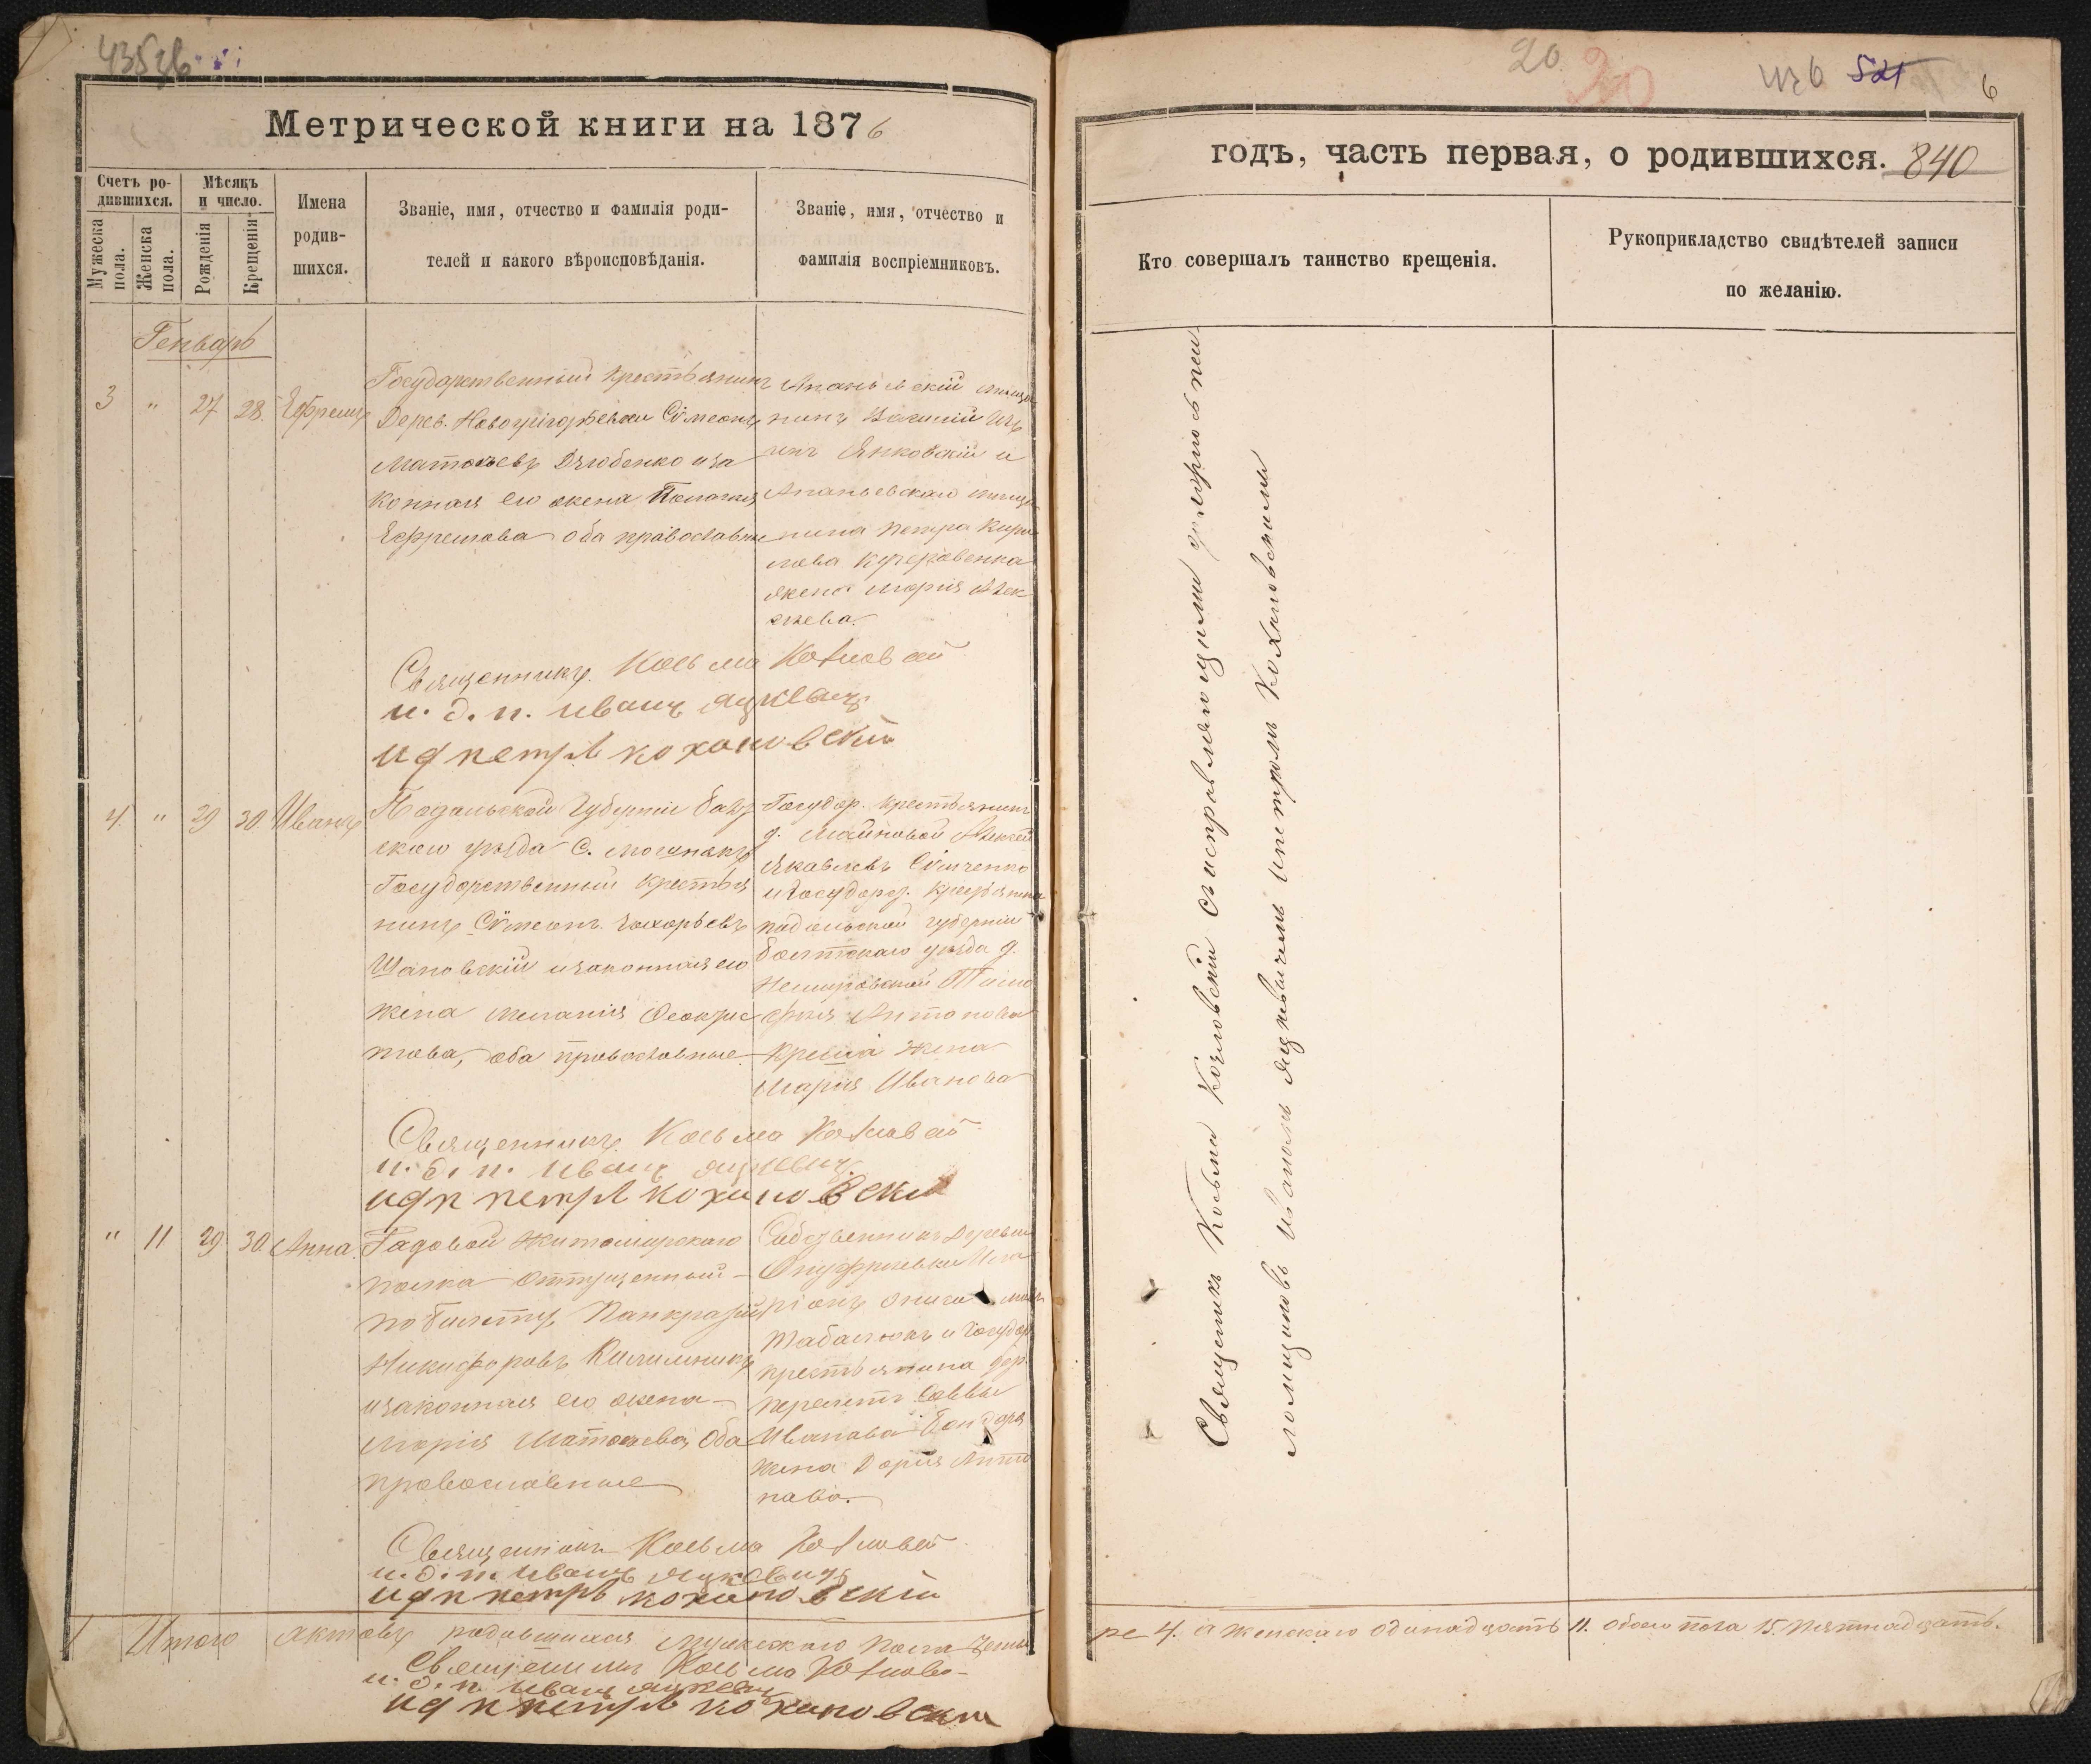 435 зв
Метрической книги на 1876
Счетъ ро-
дившихся.
Мѣсяцъ
и число.
Мужеска
пола.
Женска
пола.
Рожденія
Крещенія
Имена
родив-
шихся.
Званіе, имя, отчество и фамилія роди-
телей и какого вѣроисповѣданія.
Званіе, имя, отчество и
фамилія воспріемниковъ.
Генварь
3 " 27 28. Ефремъ
Государственный крестьянинъ
Дерев. Новогригорьевки Сѵмеонъ
Матѳеевъ Дзюбенко и за
конная его жена Пелагія
Ефремова оба православные
Ананьевскій мѣща
нинъ
Янковскій и
Ананьевскаго мѣща
нина Петра Кири
лова
жена Марія Алек
сѣева.
Священникъ Косьма Козловскій
и. д. п. Иванъ Яцкевичъ
ид петръ кохановскій
4. " 29 30. Иванъ
Подольской Губерніи Балт
скаго уѣзда С.
Государственный крестья
нинъ Сѵмеонъ Захарьевъ
Шановскій и законная его
жена Меланія Ѳеоктис
това, оба православные
Государ. крестьянинъ
д. Алексей
Яковлевъ
и Государ. крестьянина
подольской губерніи
балтскаго уѣзда д.
Тимо
фея Антонова
жена
Марія Иванова
Священникъ Косьма Козловскій
и. д. п. Иванъ Яцкевичъ
идп петръ кохановски
" 11 29 30 Анна.
Рядовой Житомирскаго
полка отпущенный
по билету, Панкратій
Никифоровъ Килимникъ
и законная его жена
Марія Матѳеева, Оба
православные
Собственникъ Деревни
Онуфріевки Ила
ріонъ
Табалюкъ и Государ
крестьянина дер.
Саввы
Иванова Бондаря
жена Дарія Анто
нова.
Священникъ Косьма Козловскій
и. д. п. Иванъ Яцкевичъ
идп петръ кохановскій
Итого актовъ родившихся мужескаго пола четы
Священникъ Косьма Козловскій
и. д. п. Иванъ Яцкевичъ
идп петръ кохановски
20
20
436
521
6
годъ, часть первая, о родившихся. 840
Кто совершалъ таинство крещенія.
Рукоприкладство свидѣтелей записи
по желанію.
Священникъ Косьма Козловскій съ исправляющими должность псал
ломщиковъ Иваномъ Яцкевичемъ и Петромъ Кохановскимъ
ре 4. а Женскаго одинадцать 11. обоего пола 15. Пятнадцать.